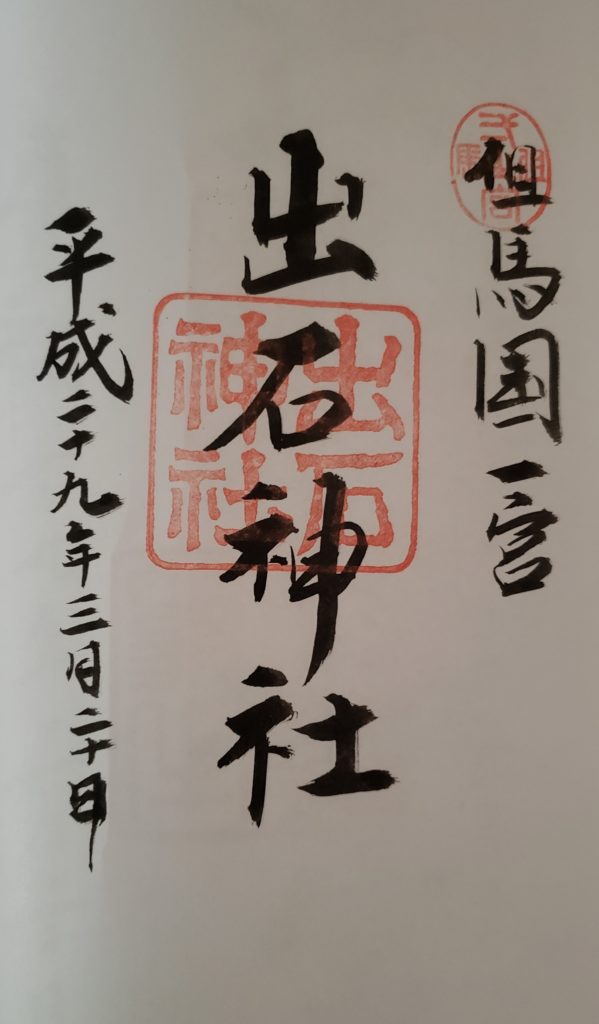 但馬国一宮
出石神社
出石
神社
平成二十九年三月二十日